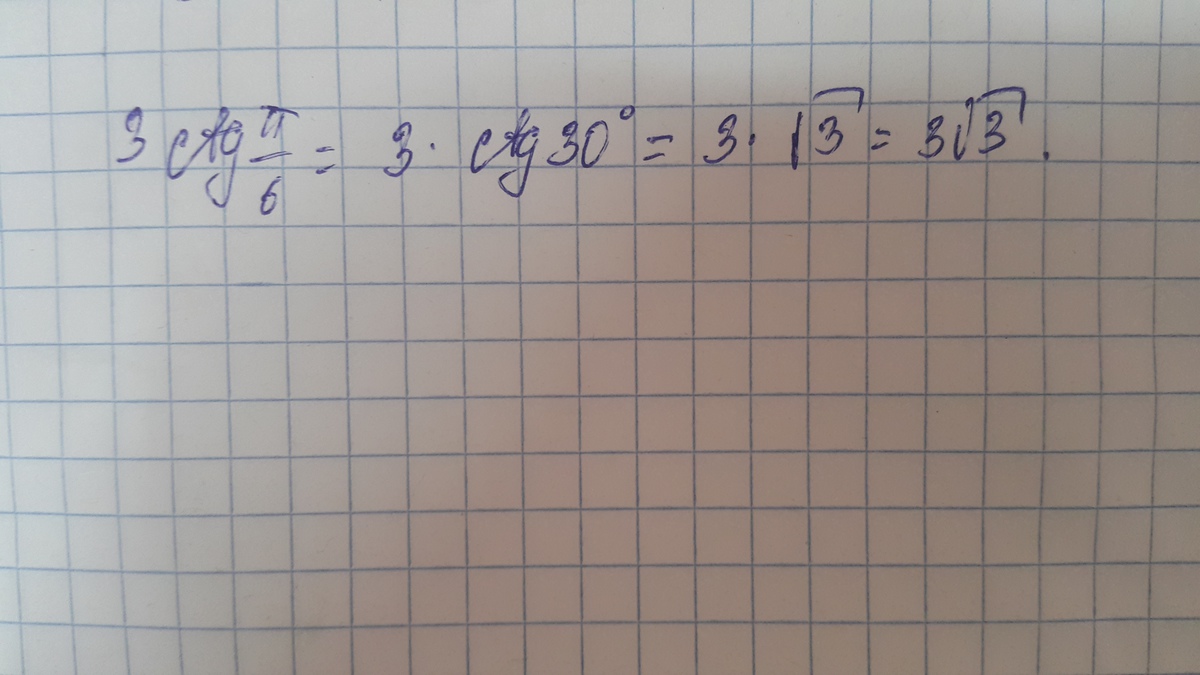 3 ctg π/6 = 3 · ctg 30° = 3 · √3 = 3√3.